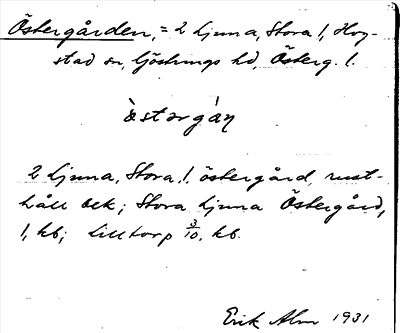 Östergården, = 2 Ljuna, Stora 1, Hog-
stad sn, Göstrings hd, Österg. l.
östərgáɳ
2 Ljuna, Stora, 1, östergård, rust-
håll Ack; Stora Ljuna Östergård,
1, kb; Lilltorp 3/10, kb.
Erik Alm 1931